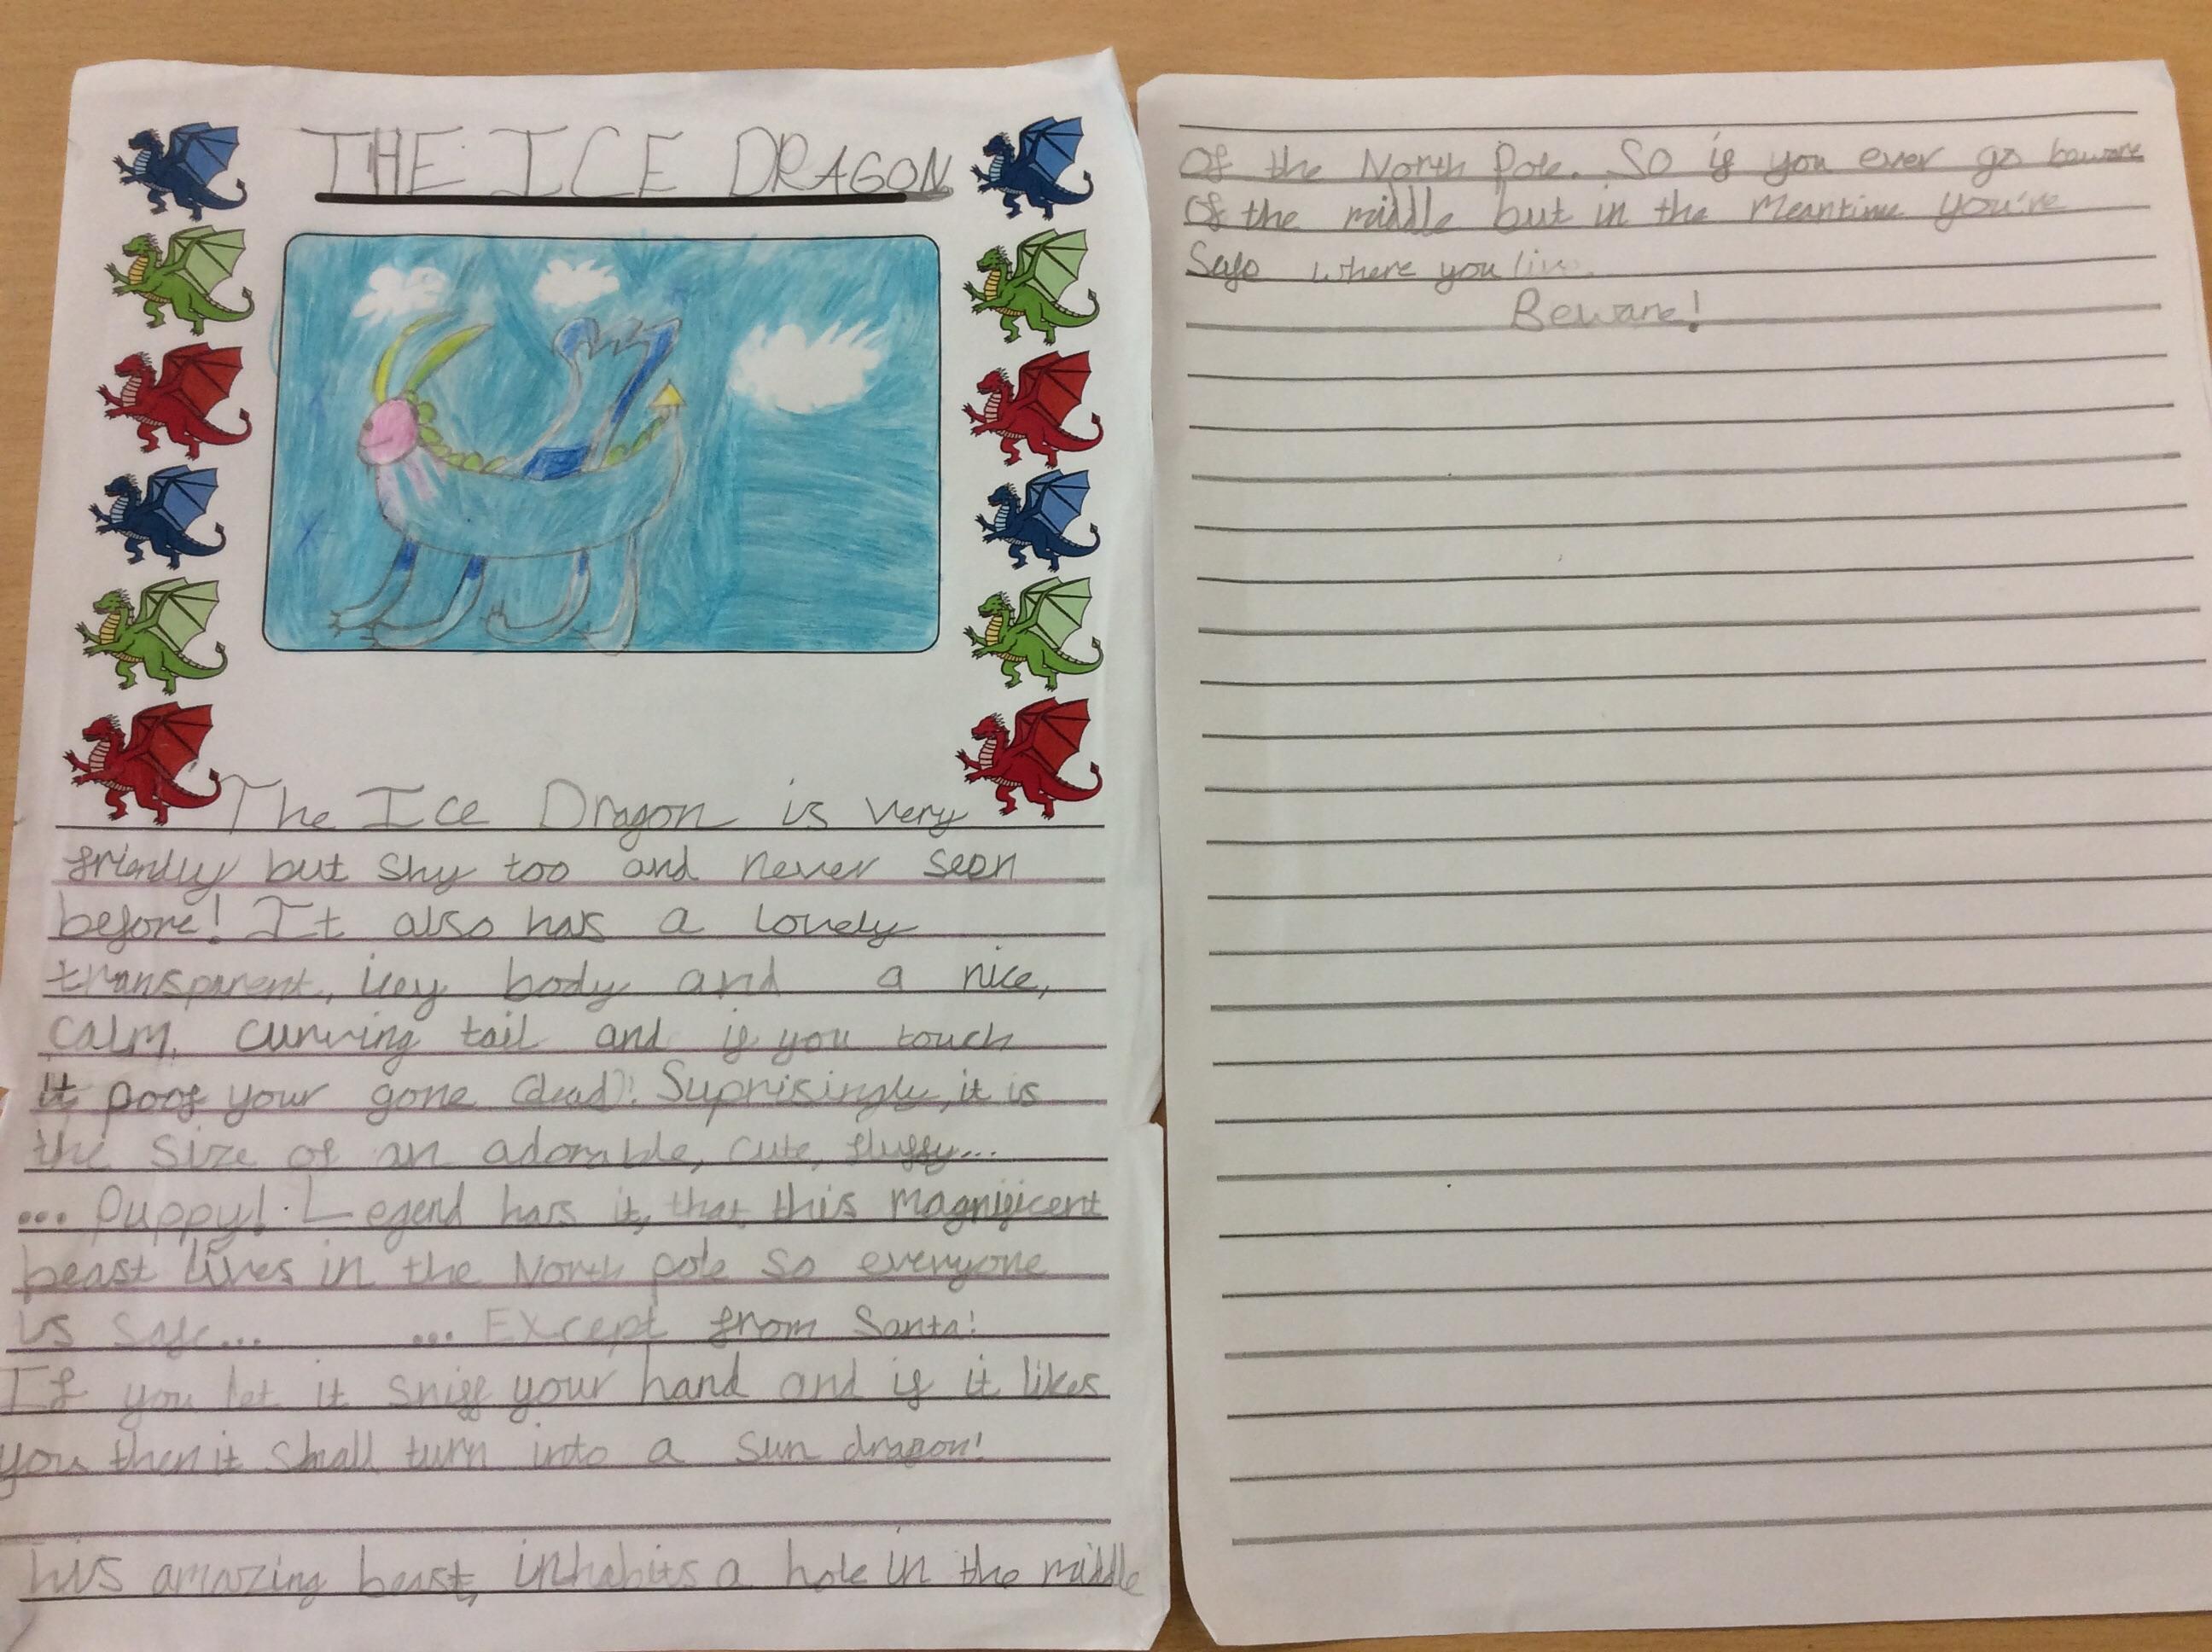 THE ICE DRAGON
The Ice Dragon is very
friendly but shy too and never seen
before! It also has a lovely
transparent, icey body and a nice,
calm, curving tail and if you touch
it poof your gone (dead)! Suprisingly, it is
the size of an adorable, cute, fluffy...
... puppy! Legend has it, that this magnificent
beast lives in the North pole so everyone
is safe... ... Except from Santa!
If you let it sniff your hand and if it likes
you then it shall turn into a sun dragon!
his amazing beast, inhabits a hole in the middle
of the North Pole. So if you ever go beware
of the middle but in the meantime you're
safe where you live.
Beware!